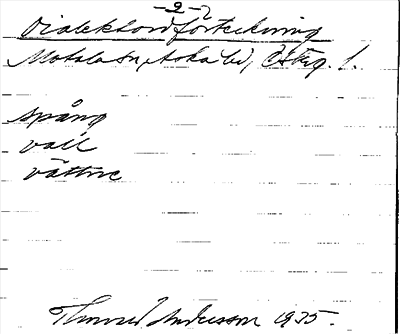 -2-
Dialektordförteckning
Motala sn, Aska hd, Östg. l.
spång
vall
vättne
Thorvald Andersson 1935.